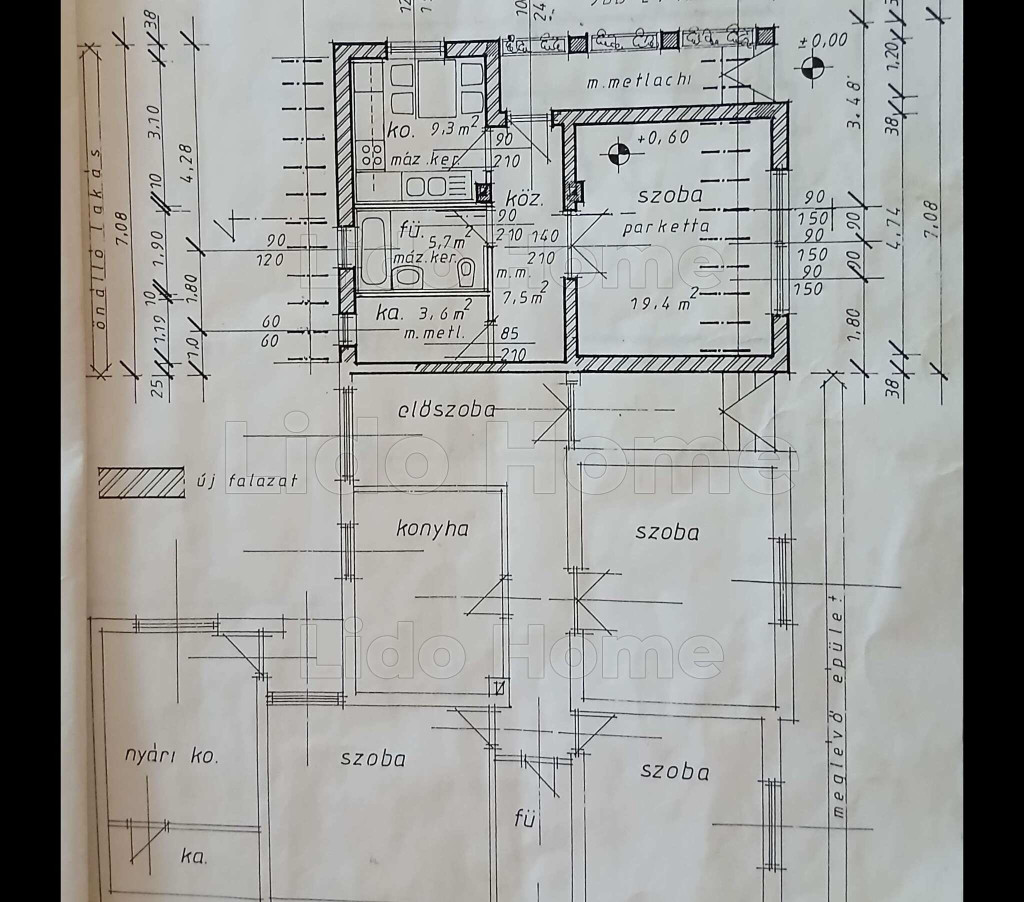 38
3.10
10
1.90
10
1.19
25
4,28
1.80
1.0
7,08
önálló lakás
90
120
60
60
ko. 9,3 m²
máz.ker.
90
210
köz.
90
210
140
210
fü. 5,7 m²
máz.ker.
m.m.
7,5 m²
ka. 3,6 m²
m.metl.
85
210
m.metlachi
±0,00
+0,60
szoba
parketta
19,4 m²
90
150
90
150
90
150
3.48
90
90
1,80
1.20
38
4.74
38
7,08
Lido Home
előszoba
Lido Home
új falazat
konyha
szoba
Lido Home
meglevő épület
nyári ko.
szoba
szoba
fü
ka.